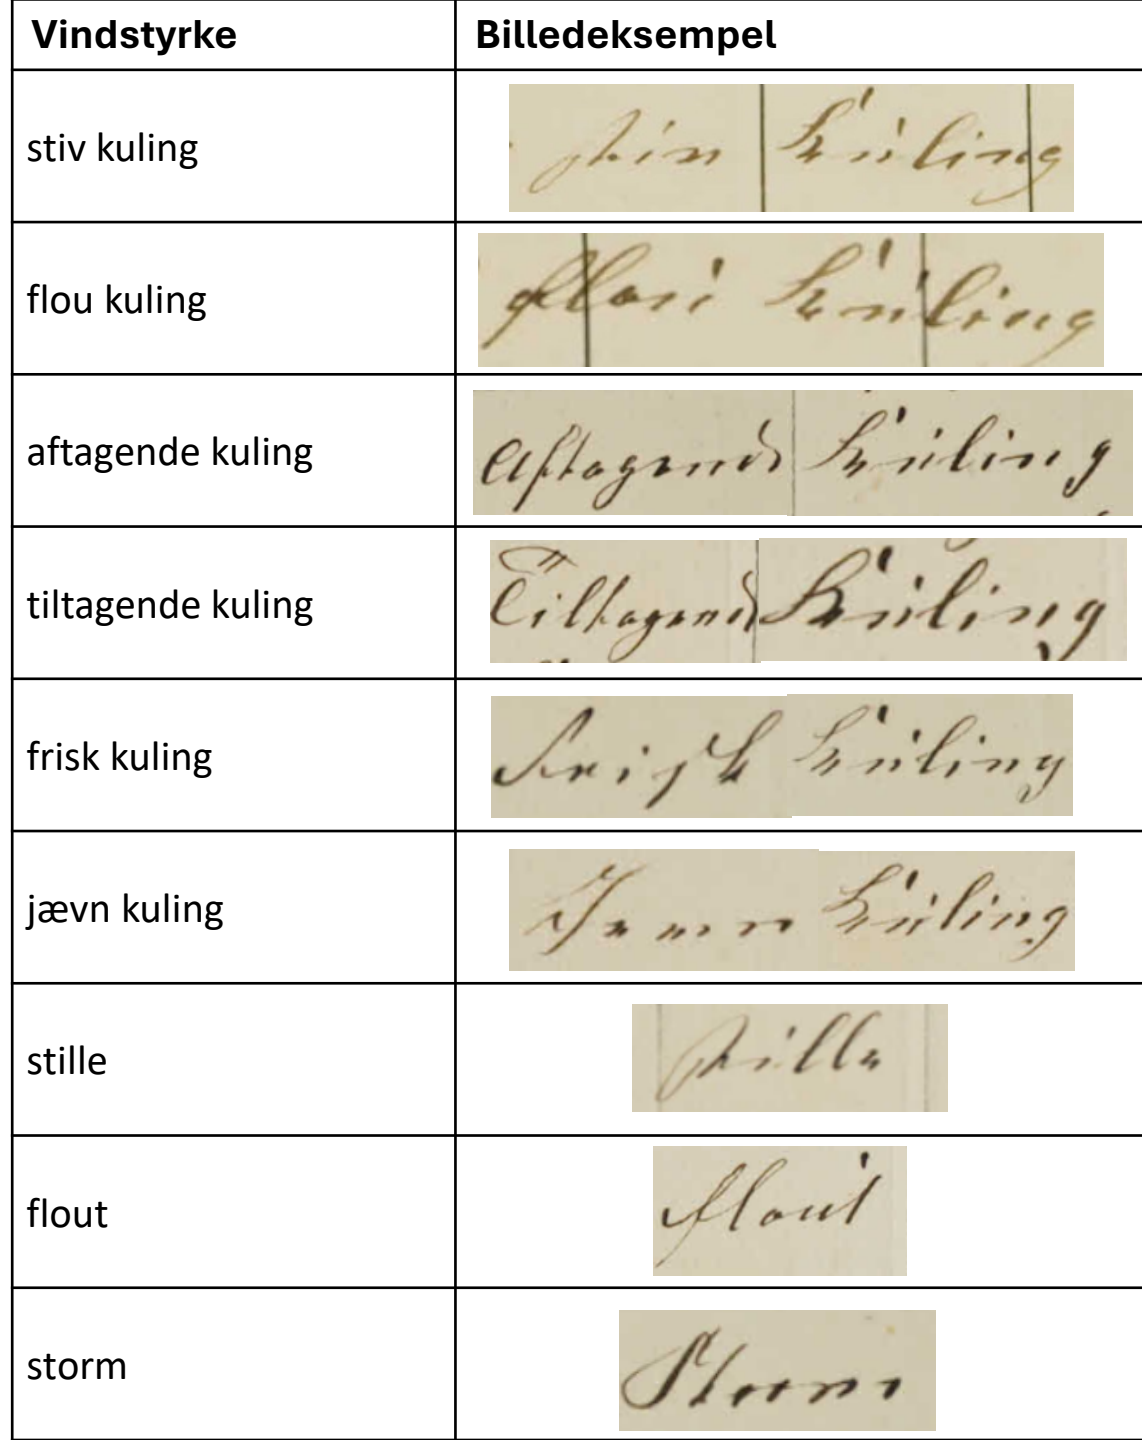 Vindstyrke Billedeksempel
stiv kuling stiv Kuling
flou kuling flou Kuling
aftagende kuling Aftagende Kuling
tiltagende kuling Tiltagende Kuling
frisk kuling Frisk Kuling
jævn kuling Jevn Kuling
stille stille
flout flout
storm Storm